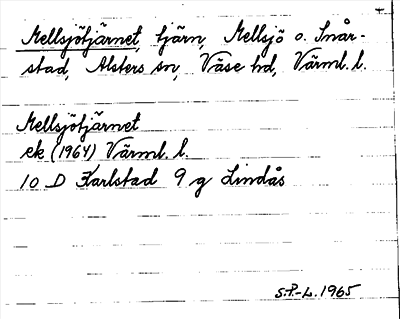 Mellsjötjärnet, tjärn, Mellsjö o. Snår-
stad, Alsters sn, Väse hd, Värml. l.
Mellsjötjärnet
ek (1964) Värml. l.
10 D Karlstad 9 g Lindås
S.P.-L. 1965